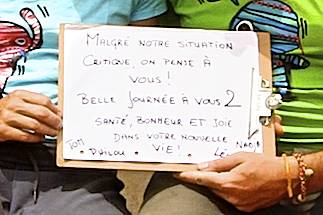 MALGRÉ NOTRE SITUATION
CRITIQUE, ON PENSE À
VOUS !
BELLE JOURNÉE À VOUS 2
SANTÉ, BONHEUR ET JOIE
DANS VOTRE NOUVELLE
VIE !
TOM
PHILOU
LÉ
NAD !